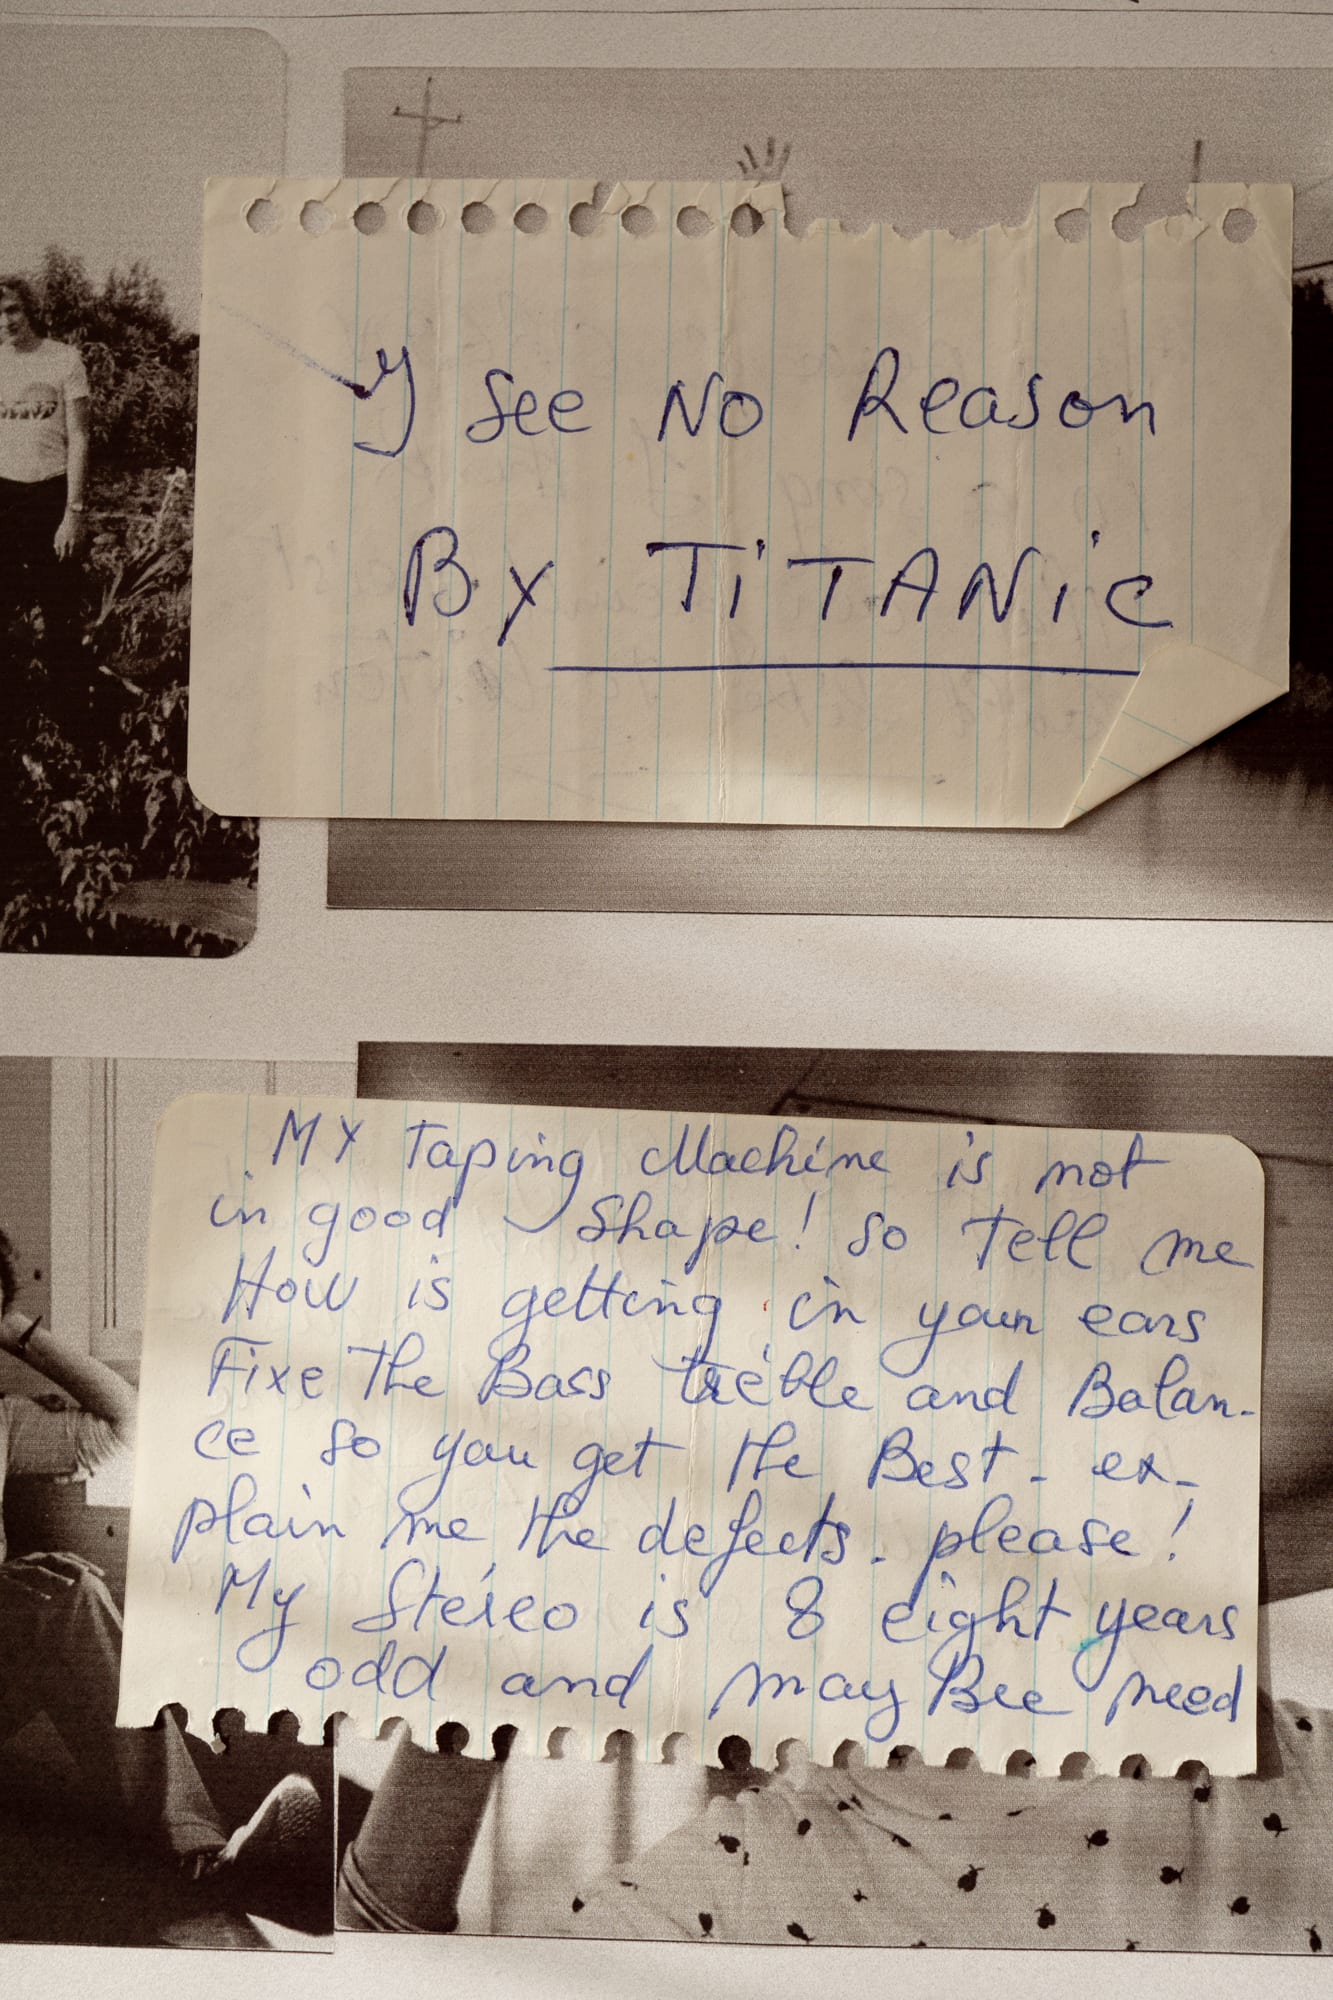 I See No Reason
By TiTANiC
My Taping Machine is not
in good Shape! so Tell me
How is getting in your ears
Fixe The Bass tréble and Balan-
ce so you get the Best - ex-
plain me the defects. please!
My Stéreo is 8 eight years
odd and may Bee need